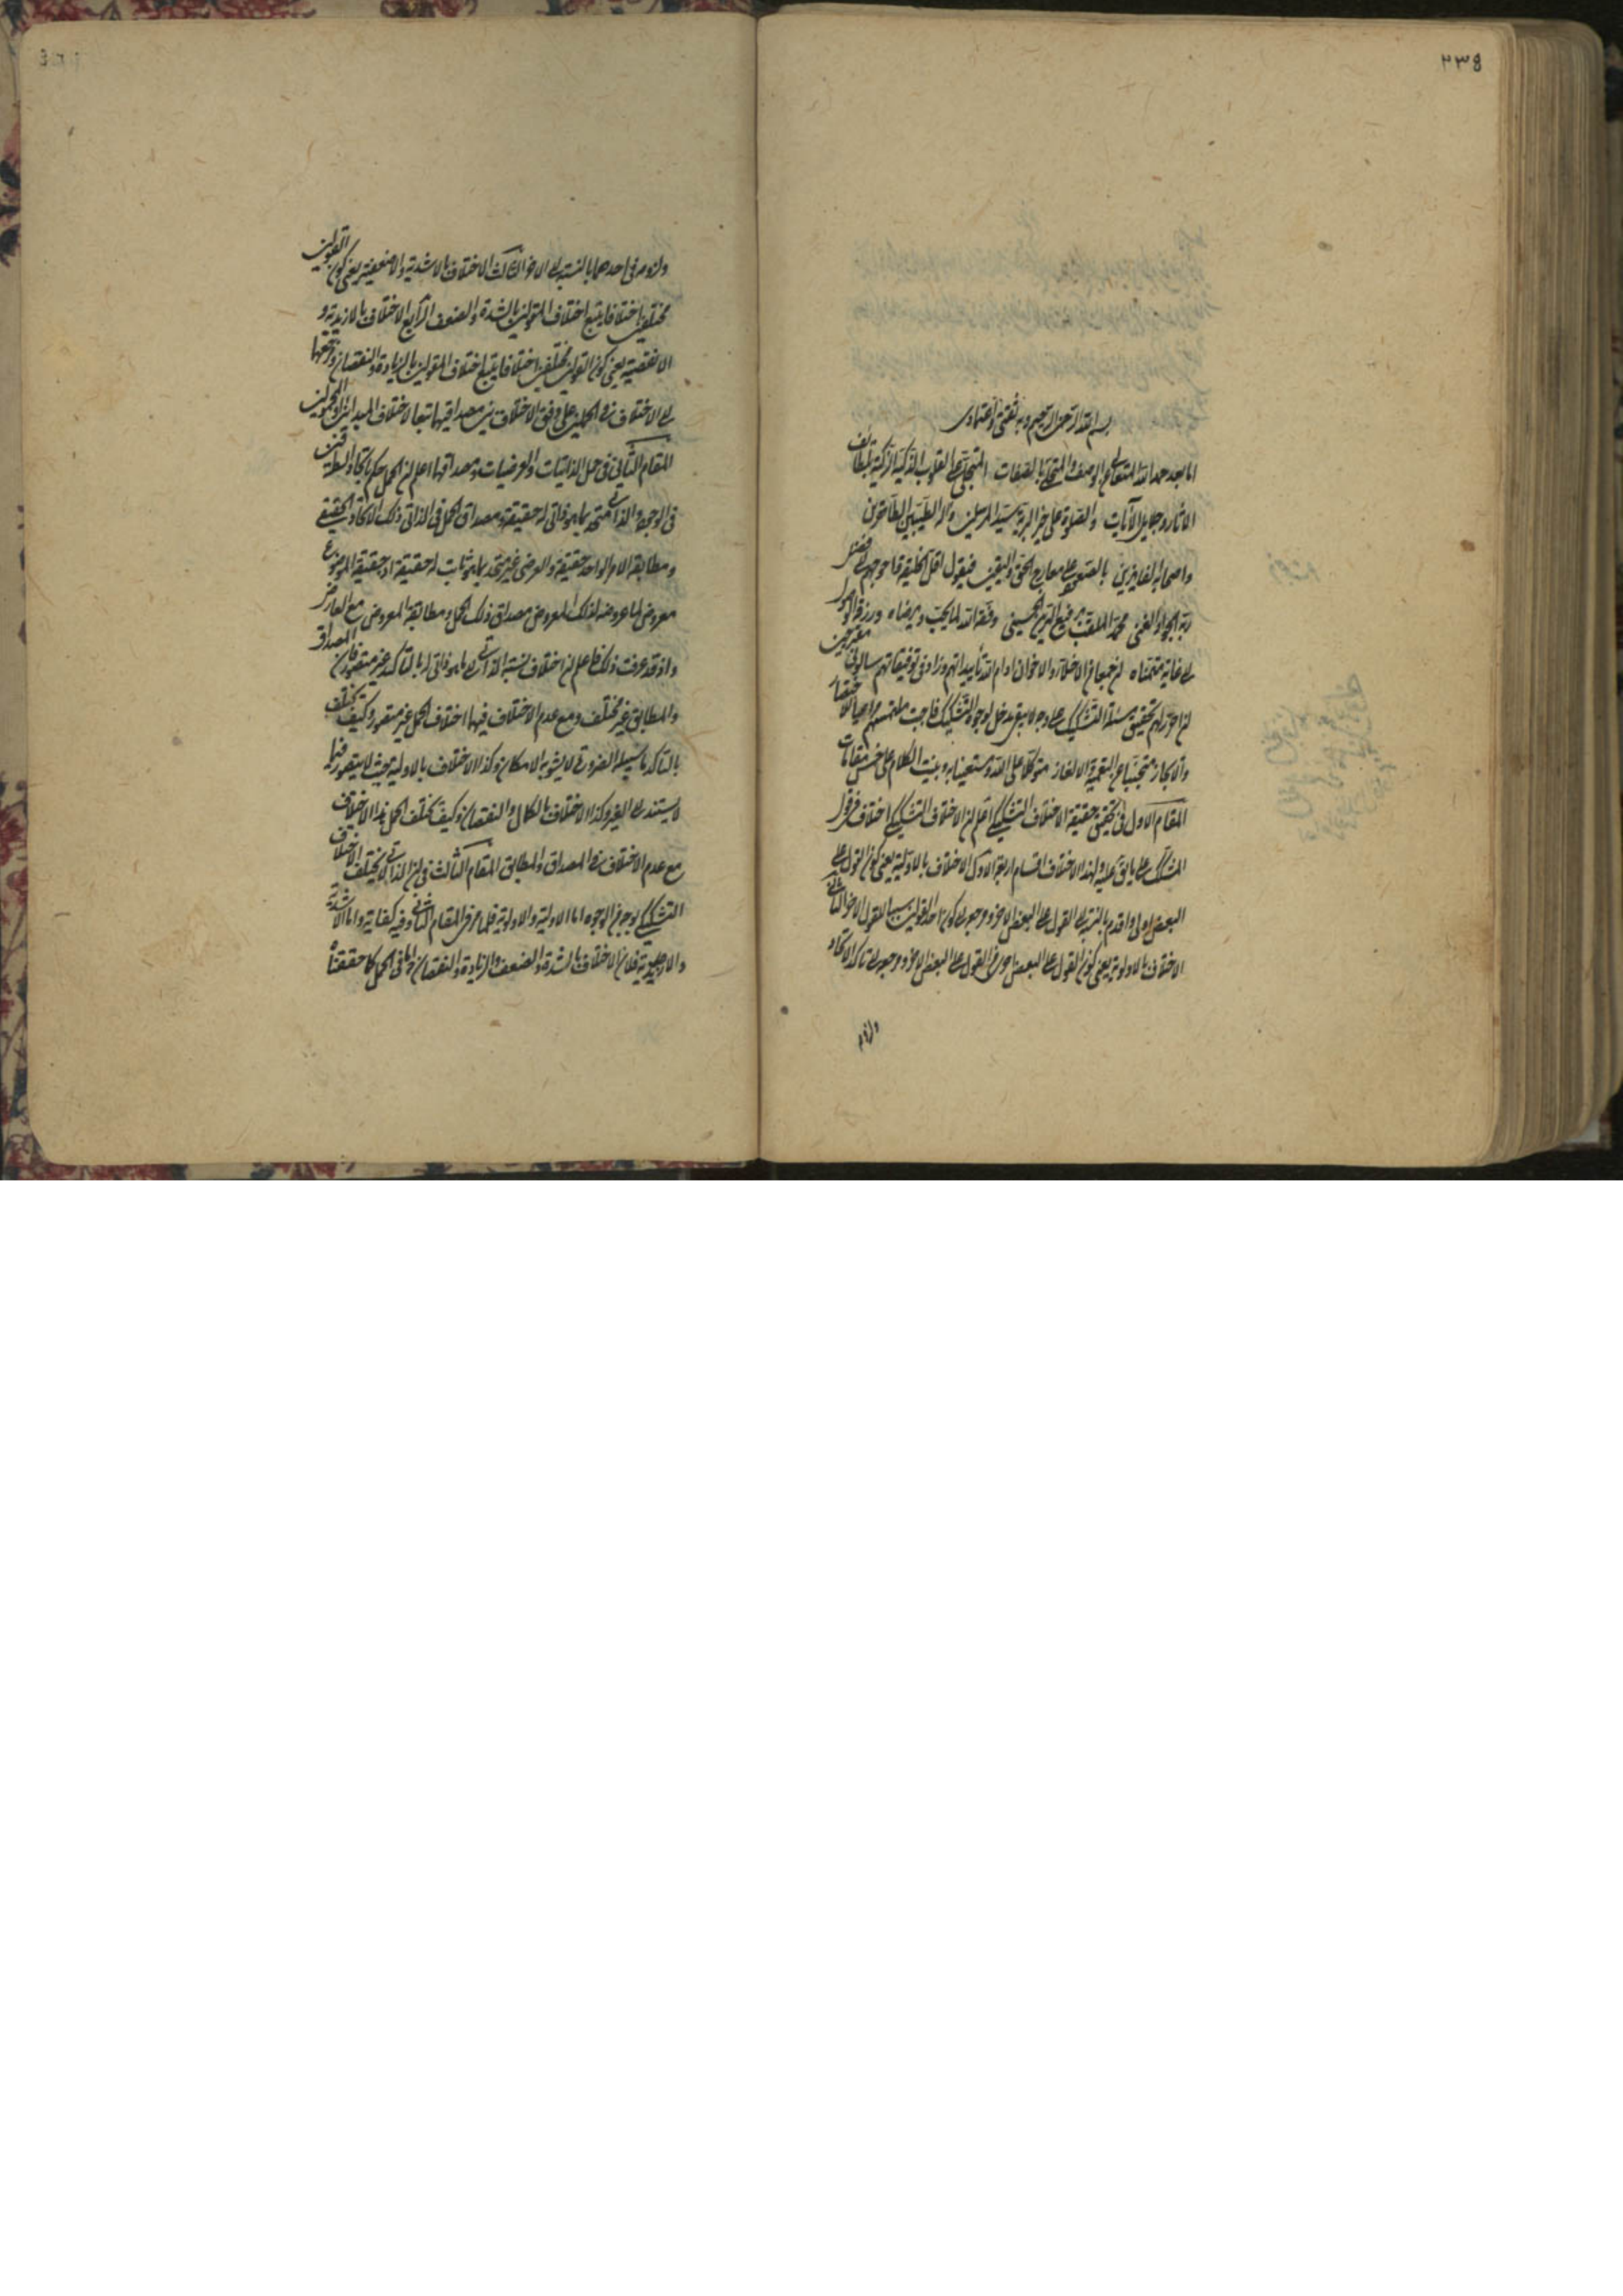 ٢٣٤
بسم الله الرحمن الرحيم وبه ثقتي واعتمادي
اما بعد حمد الله المتعالي عن الوصف والمتحلي بالصفات المتجلي على القلوب الذكية الزكية بلطائف
الاثار وجلايل الآيات والصلوة على خير البرية سيد المرسلين وآله الطيبين الطاهرين
واصحابه الفايزين بالصعود على معارج الحق واليقين فيقول اقل الخليقة واحوجهم الى فضل
ربه الجواد الغني محمد الملقب برفيع الدين الحسيني وفقه الله لما يحب ويرضاه ورزقه الوصول
الى غاية متمناه ان جمعا من الاخلاء والاخوان ادام الله تأييداتهم وزاد في توفيقاتهم سالوني مقترحين
ان احرر لهم تحقيق مسئلة التشكيك على وجه لا يبقى مدخل لوجوه التشكيك فاجبت ملتمسهم مراعيا للاختصار
والايجاز متجنبا عن التعمية والالغاز متوكلا على الله ومستعينا به وبنيت الكلام على خمس مقامات
المقام الاول في تحقيق حقيقة الاختلاف التشكيكي اعلم ان الاختلاف التشكيكي اختلاف في قول
المشكك على ما يق عليه ولهذا الاختلاف اقسام اربعة الاول الاختلاف بالاولية يعني كون القول على
البعض اولى واقدم بالنسبة الى القول على البعض الاخر ومرجعه الى كون احد القولين سببا للقول الاخر الثاني
الاختلاف بالاولوية يعني كون القول على البعض احرى من القول على البعض الاخر ومرجعه الى تاكد الاتحاد
ولزومه
ولزومه في احدهما بالنسبة الى الاخر الثالث الاختلاف بالاشدية والاضعفية يعني كون القولين
مختلفين اختلافا يتبع اختلاف المقولين بالشدة والضعف الرابع الاختلاف بالازيدية و
الانقصية يعني كون القولين مختلفين اختلافا يتبع اختلاف المقولين بالزيادة والنقصان ومرجعهما
الى الاختلاف في الحملين على وفق الاختلاف بين مصداقيهما تبعا لاختلاف المبدأين او المحمولين
المقام الثاني في حمل الذاتيات والعرضيات ومصداقهما اعلم ان الحمل حكم باتحاد الطرفين
في الوجود والذاتي متحد بما هو ذاتي له حقيقة ومصداق الحمل في الذاتي ذلك الاتحاد الحقيقي
ومطابقه الامر الواحد حقيقة والعرضي غير متحد بما هو ثابت له حقيقة اذ حقيقة الموضوع
معروض لما عروضه لذلك المعروض مصداق ذلك الحمل ومطابقه المعروض مع العارض
واذ قد عرفت ذلك فاعلم ان اختلاف نسبة الذاتي الى ما هو ذاتي له بالتاكد غير متصور فان المصداق
والمطابق غير مختلف ومع عدم الاختلاف فيهما اختلاف الحمل غير متصور وكيف يختلف
بالتاكد ما سبيله الضرورة لا يشوبه الامكان وكذا الاختلاف بالاولية بحيث لا يتصور فيما
لا يستند الى الغير وكذا الاختلاف بالكمال والنقصان وكيف يختلف الحمل بهذا الاختلاف
مع عدم الاختلاف في المصداق والمطابق المقام الثالث في ان الذاتي لا يختلف الاختلاف
التشكيكي بوجه من الوجوه اما الاولية والاولوية فلما مر في المقام الثاني وفيه كفاية واما الاشدية
والازيدية فلان الاختلاف بالشدة والضعف والزيادة والنقصان في الحمل كما حققناه